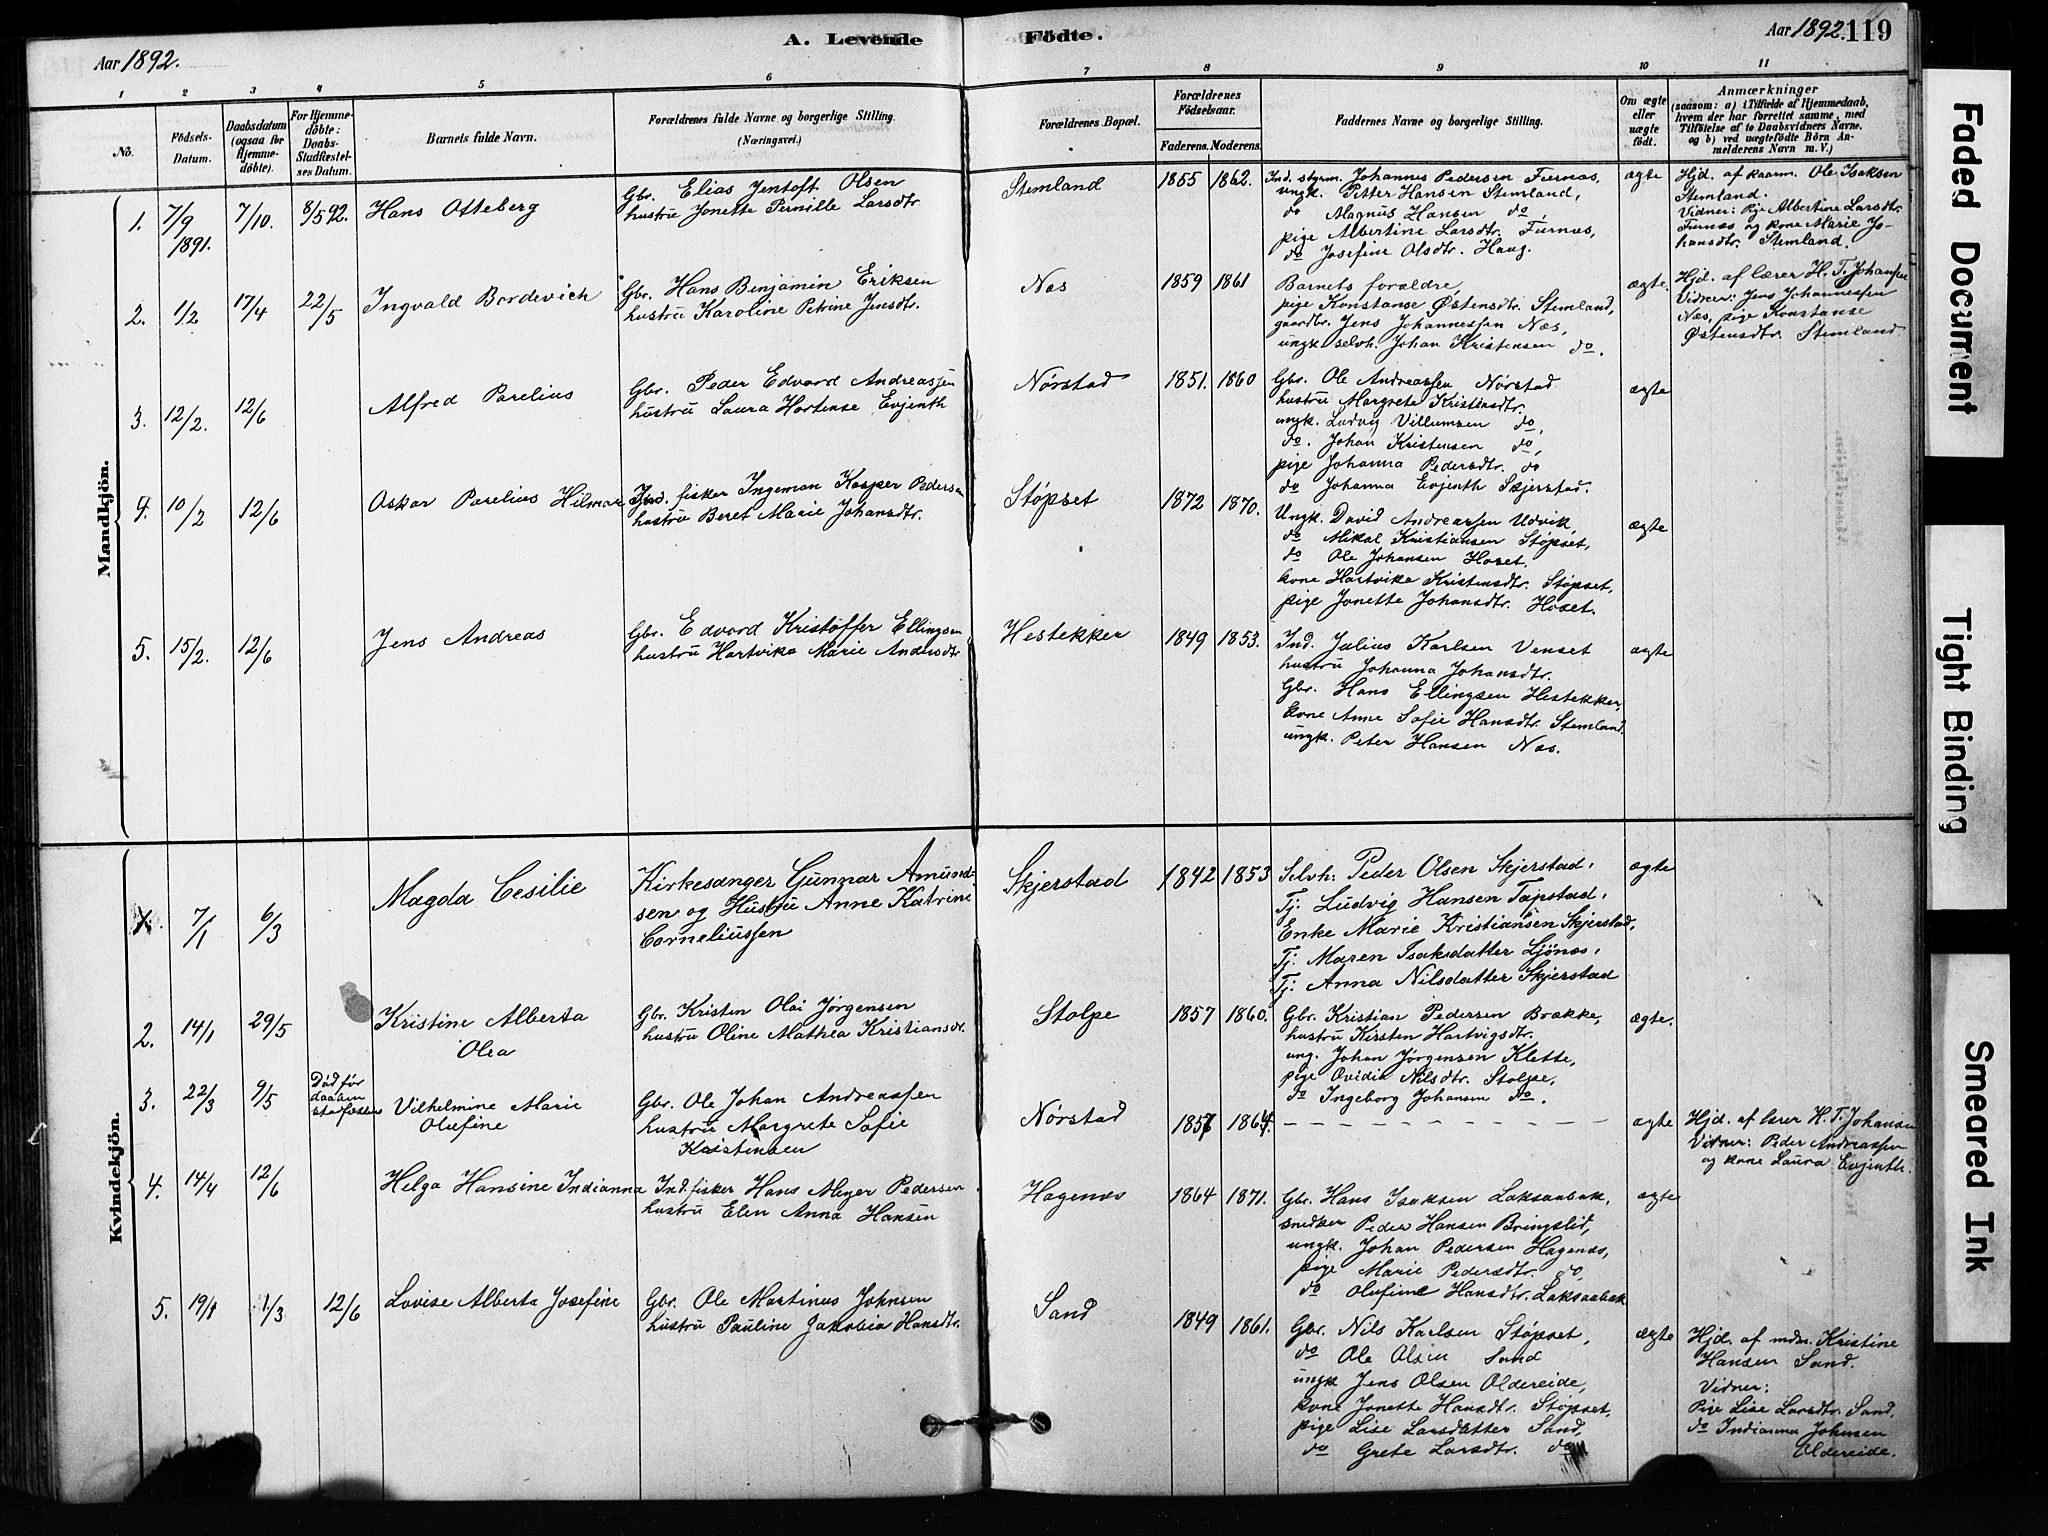 Aar 1892.
A. Levende Fødte.
Aar 1892. 119
1 2 3 4 5 6 7 8 9 10 11
No.
Födsels-Datum.
Daabsdatum (ogsaa for Hjemme-døbte).
For Hjemme-døbte: Daabs-Stadfæstel-ses Datum.
Barnets fulde Navn.
Forældrenes fulde Navne og borgerlige Stilling. (Næringsvei.)
Forældrenes Bopæl.
Forældrenes Födselsaar.
Faderens. Moderens.
Faddernes Navne og borgerlige Stilling.
Om ægte eller uægte født.
Anmærkninger
(saasom: a) i Tilfælde af Hjemmedaab, hvem der har forrettet samme, med Tilføielse af to Daabsvidners Navne, og b) ved uægtefødte Börn An-melderens Navn m. V.)
Mandkjön.
1. 7/9 1891. 7/10. 8/5 92. Hans Otteberg
Gbr. Elias Jentoft Olsen
hustru Jonette Pernille Larsdtr
Stemland 1855 1862.
Ind. styrm. Johannes Pedersen Furnæs,
ungk. Petter Hansen Stemland,
do Magnus Hansen do,
pige Albertine Larsdtr. Furnæs,
do Josefine Olsdtr. Haug.
ægte
Hjd. af kaarm. Ole Isaksen
Stemland.
Vidner: Pige Albertine Larsdtr.
Furnæs og kone Marie Jo-
hansdtr. Stemland.
2. 1/2 17/4 22/5 Ingvald Bordevich
Gbr. Hans Benjamin Eriksen
hustru Karoline Petrine Jensdtr.
Næs 1859 1861
Barnets forældre,
pige Konstanse Østensdtr. Stemland,
gaardbr. Jens Johannessen Næs,
ungk. selvh. Johan Kristensen do.
ægte.
Hjd. af lærer H. T. Johansen
Vidner: Jens Johannessen
Næs, pige Konstanse
Østensdtr. Stemland
3. 12/2. 12/6 Alfred Parelius
Gbr. Peder Edvard Andreassen
hustru Laura Hortense Evjenth
Nørstad 1851. 1860
Gbr. Ole Andreassen Nørstad
hustru Margrete Kristensdtr.
ungk. Ludvig Villumsen do,
do. Johan Kristensen do,
pige Johanna Pedersdtr. do
do Johanna Evjenth Skjerstad.
ægte
4. 10/2 12/6 Oskar Parelius Hilmar
Ind. fisker Ingeman Kasper Pedersen
hustru Beret Marie Johansdtr.
Støpset 1872 1870.
Ungk. David Andreassen Udvik,
do Mikal Kristiansen Støpset,
do Ole Johansen Hoset.
kone Hartvika Kristensdtr. Støpset,
pige Jonette Johansdtr. Hoset.
ægte
5. 15/2. 12/6 Jens Andreas
Gbr. Edvard Kristoffer Ellingsen
hustru Hartvika Marie Andersdtr
Hestekker 1849 1853.
Ind. Julius Karlsen Venset
hustru Johanna Johansdtr.
Gbr. Hans Ellingsen Hestekker,
kone Anne Sofie Hansdtr. Stemland.
ungk. Peter Hansen Næs.
ægte
Kvindekjön.
1. 7/1 6/3 Magda Cesilie
Kirkesanger Gunnar Amund-
sen og Hustru Anne Katrine
Corneliussen
Skjerstad 1842 1853
Selvh: Peder Olsen Skjerstad,
Tj: Ludvig Hansen Tapstad,
Enke Marie Kristiansen Skjerstad,
Tj: Maren Isaksdatter Ljönæs,
Tj: Anna Nilsdatter Skjerstad
ægte
2. 14/1 29/5 Kristine Alberta
Olea
Gbr. Kristen Olai Jørgensen
hustru Oline Mathea Kristiansdr.
Stolpe 1857 1860.
Gbr. Kristian Pedersen Brække,
hustru Kirsten Hartvigsdtr.
ung. Johan Jørgensen Klette,
pige Ovidia Nilsdtr. Stolpe,
do Ingeborg Johansen do.
ægte.
3. 22/3 9/5 Død før daaben stadfæstes
Vilhelmine Marie
Olufine
Gbr. Ole Johan Andreassen
hustru Margrete Sofie
Kristensen
Nørstad 1857 1864.
ægte
Hjd. af lærer H. T. Johansen
Vidner: Peder Andreassen
og kone Laura Evjenth.
4. 14/4 12/6 Helga Hansine Indianna
Ind. fisker Hans Meyer Pedersen
hustru Elen Anna Hansen
Hagenæs 1864 1871.
Gbr. Hans Isaksen Laksaabak,
snedker Peder Hansen Bringslid,
ungk. Johan Pedersen Hagenæs,
pige Marie Pedersdtr. do,
do Olufine Hansdtr. Laksaabak
ægte
5. 19/1 1/3 12/6 Lovise Alberta Josefine
Gbr. Ole Martinus Johnsen
hustru Pauline Jakobia Hansdtr.
Sand 1849 1861.
Gbr. Nils Karlsen Støpset,
do Ole Olsen Sand
ungk Jens Olsen Oldereide,
kone Jonette Hansdtr. Støpset,
pige Lise Larsdatter Sand,
do Grete Larsdtr. do
ægte
Hjd. af mdm. Kristine
Hansen Sand.
Vidner:
Pige Lise Larsdtr. Sand,
do Indianna Johnsen
Oldereide.
Faded Document
Tight Binding
Smeared Ink